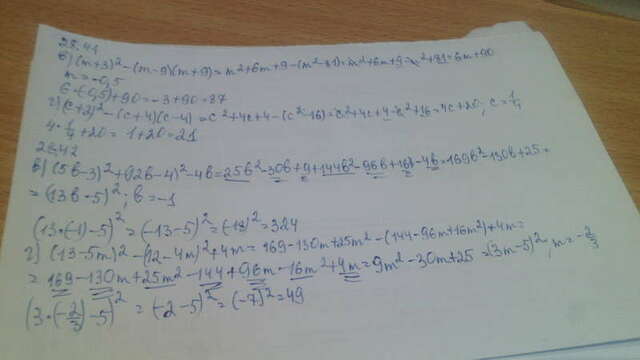 28.41
в) (m+3)² - (m-9)(m+9) = m²+6m+9-(m²-81) = m²+6m+9-m²+81 = 6m+90
m = -0,5
6·(-0,5)+90 = -3+90 = 87
г) (c+2)² - (c+4)(c-4) = c²+4c+4-(c²-16) = c²+4c+4-c²+16 = 4c+20; c = 1/4
4·1/4+20 = 1+20 = 21
28.42
в) (5b-3)²+(12b-4)²-4b = 25b²-30b+9+144b²-96b+16-4b = 169b²-130b+25 =
= (13b-5)²; b = -1
(13·(-1)-5)² = (-13-5)² = (-18)² = 324
г) (13-5m)² - (12-4m)²+4m = 169-130m+25m²-(144-96m+16m²)+4m =
= 169-130m+25m²-144+96m-16m²+4m = 9m²-30m+25 = (3m-5)²; m = -2/3
(3·(-2/3)-5)² = (-2-5)² = (-7)² = 49